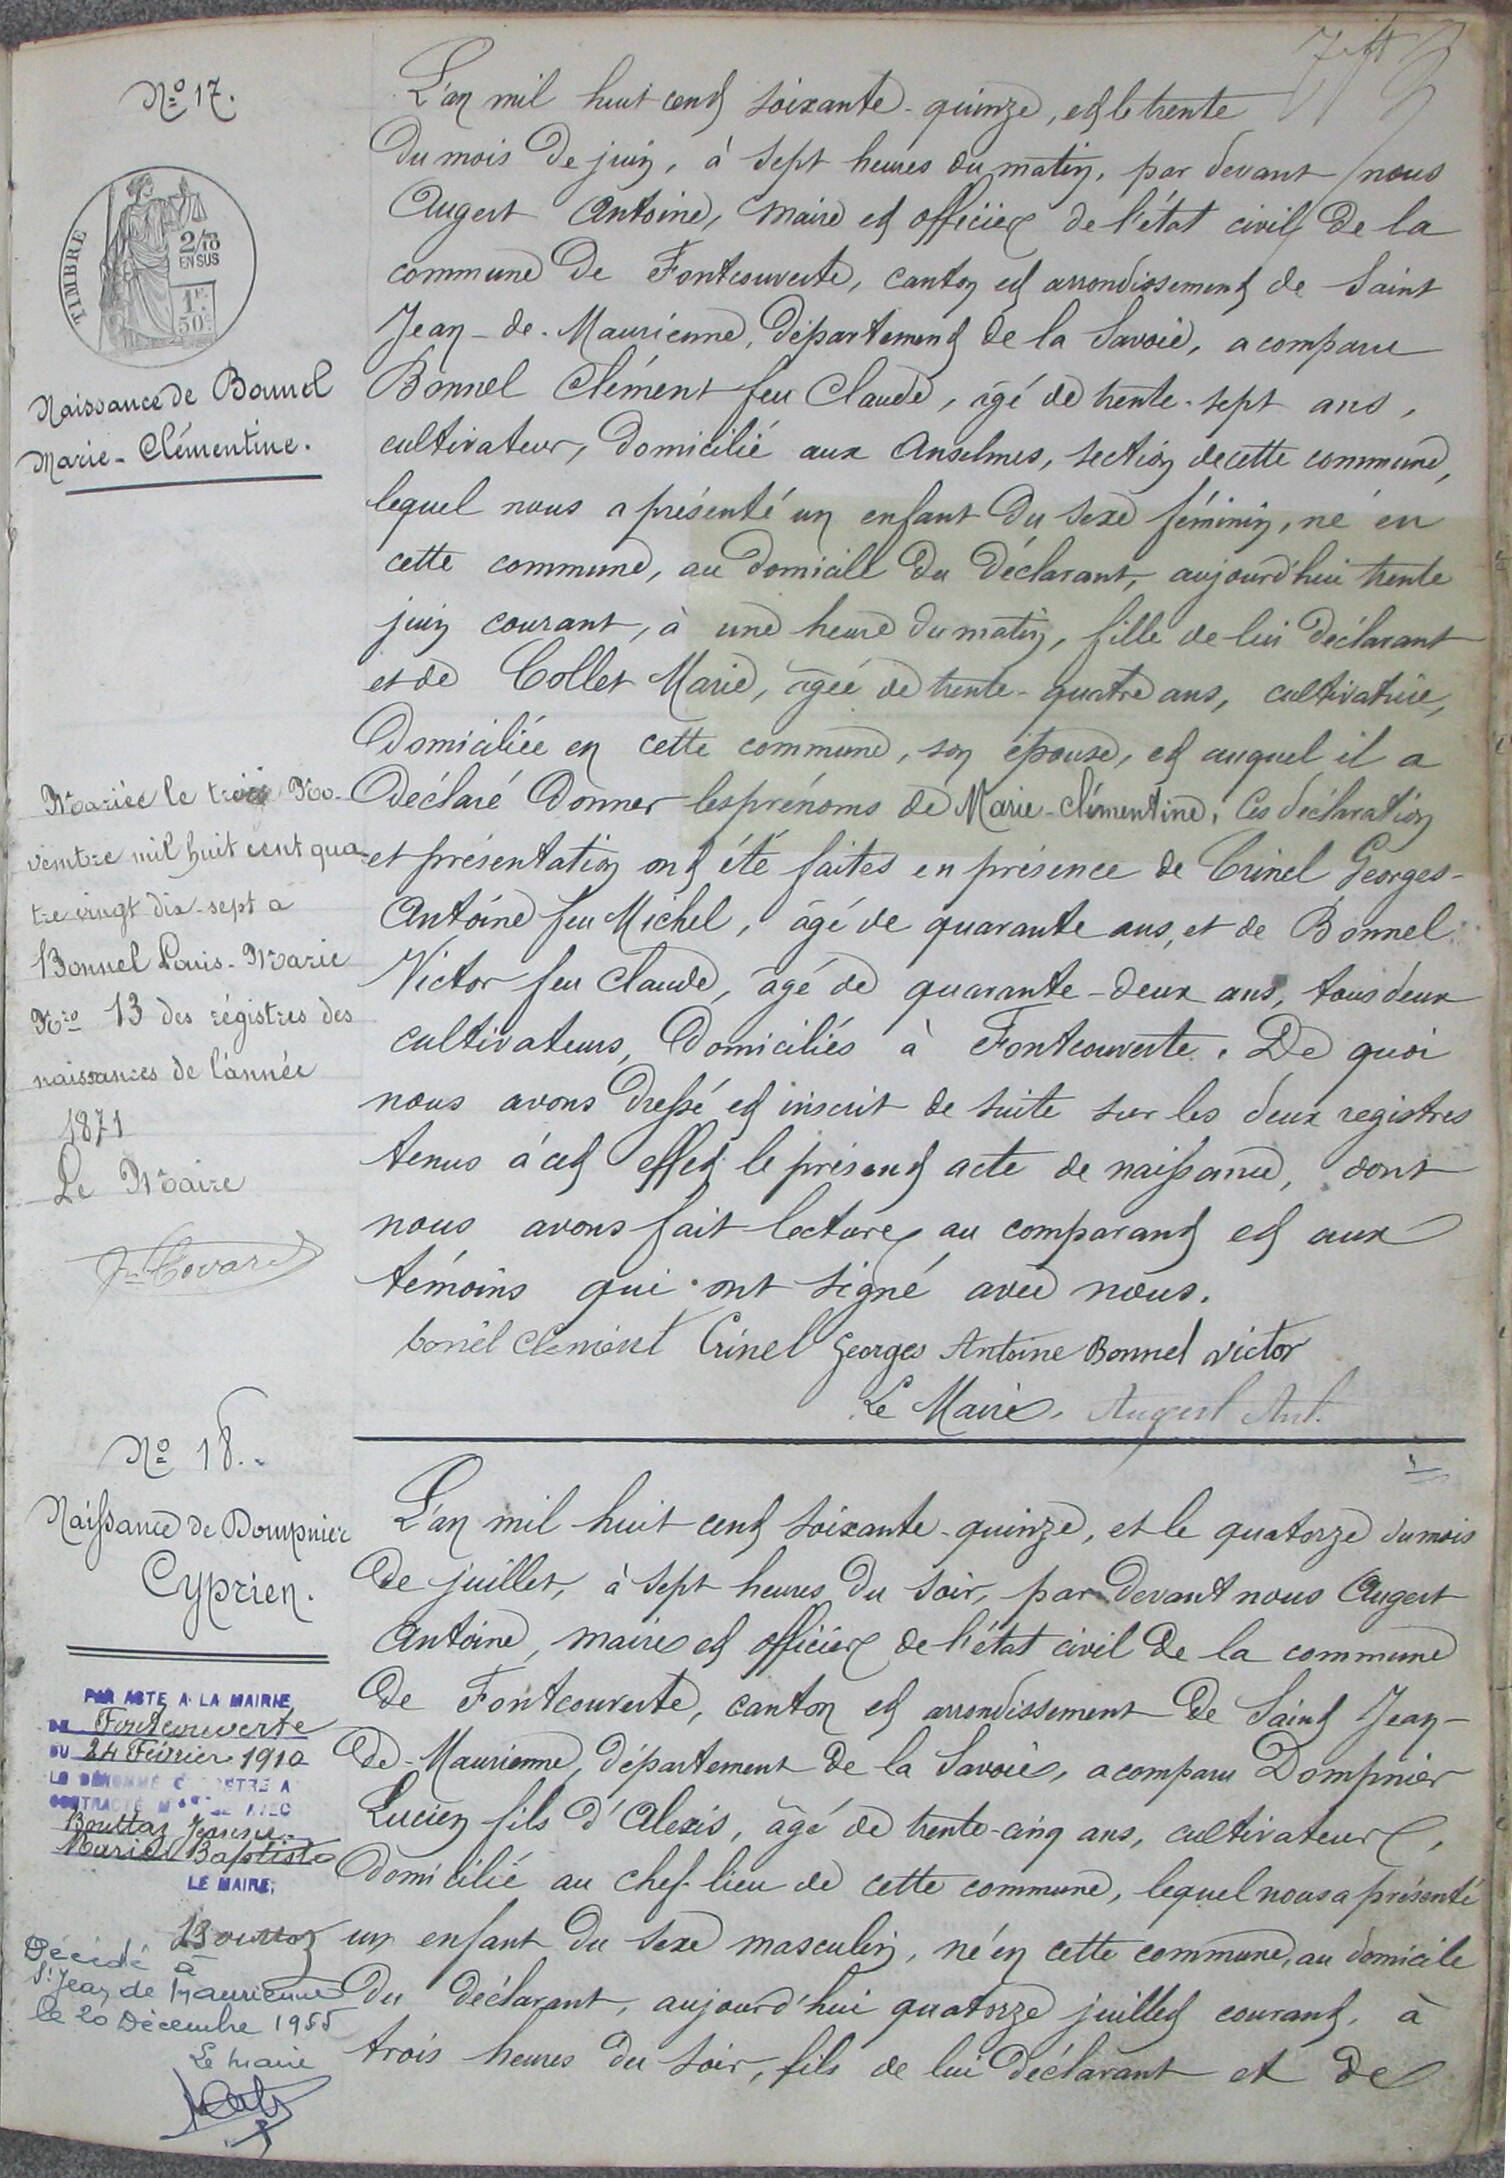 N° 17.
TIMBRE
2/10
EN SUS
1F.
50c.
Naissance de Bonnel
Marie-Clémentine.
L'an mil huit cent soixante-quinze, et le trente
du mois de juin, à sept heures du matin, par devant nous
Augert Antoine, maire et officier de l'état civil de la
commune de Fontcouverte, canton et arrondissement de Saint
Jean-de-Maurienne, département de la Savoie, a comparu
Bonnel Clément feu Claude, âgé de trente-sept ans,
cultivateur, domicilié aux Anselmes, section de cette commune,
lequel nous a présenté un enfant du sexe féminin, né en
cette commune, au domicile du déclarant, aujourd'hui trente
juin courant, à une heure du matin, fille de lui déclarant
et de Collet Marie, âgée de trente-quatre ans, cultivatrice,
domiciliée en cette commune, son épouse, et auquel il a
déclaré donner les prénoms de Marie-Clémentine. Ces déclaration
et présentation ont été faites en présence de Crinel Georges-
Antoine feu Michel, âgé de quarante ans, et de Bonnel
Victor feu Claude, âgé de quarante-deux ans, tous deux
cultivateurs, domiciliés à Fontcouverte. De quoi
nous avons dressé et inscrit de suite sur les deux registres
tenus à cet effet le présent acte de naissance, dont
nous avons fait lecture au comparant et aux
témoins qui ont signé avec nous.
bonnel Clement Crinel Georges Antoine Bonnel victor
Le Maire, Augert Ant.
Mariée le trois No-
vembre mil huit cent qua-
tre vingt dix-sept à
Bonnel Louis-Marie
Nro 13 des régistres des
naissances de l'année
1871
Le Maire
N° 18.
Naissance de Dompnier
Cyprien.
L'an mil huit cent soixante-quinze, et le quatorze du mois
de juillet, à sept heures du soir, par devant nous Augert
Antoine, maire et officier de l'état civil de la commune
de Fontcouverte, canton et arrondissement de Saint Jean-
de-Maurienne, département de la Savoie, a comparu Dompnier
Lucien fils d'Alexis, âgé de trente-cinq ans, cultivateur,
domicilié au chef-lieu de cette commune, lequel nous a présenté
un enfant du sexe masculin, né en cette commune, au domicile
du déclarant, aujourd'hui quatorze juillet courant, à
trois heures du soir, fils de lui déclarant et de
PAR ACTE A LA MAIRIE
DE Fontcouverte
DU 24 Février 1910
LE DÉNOMMÉ CI-CONTRE A
CONTRACTÉ MARIAGE AVEC
Bouttaz Jeanne
Marie Baptiste
LE MAIRE,
Bouttaz
Décédé à
St Jean de Maurienne
le 20 Décembre 1955
Le Maire